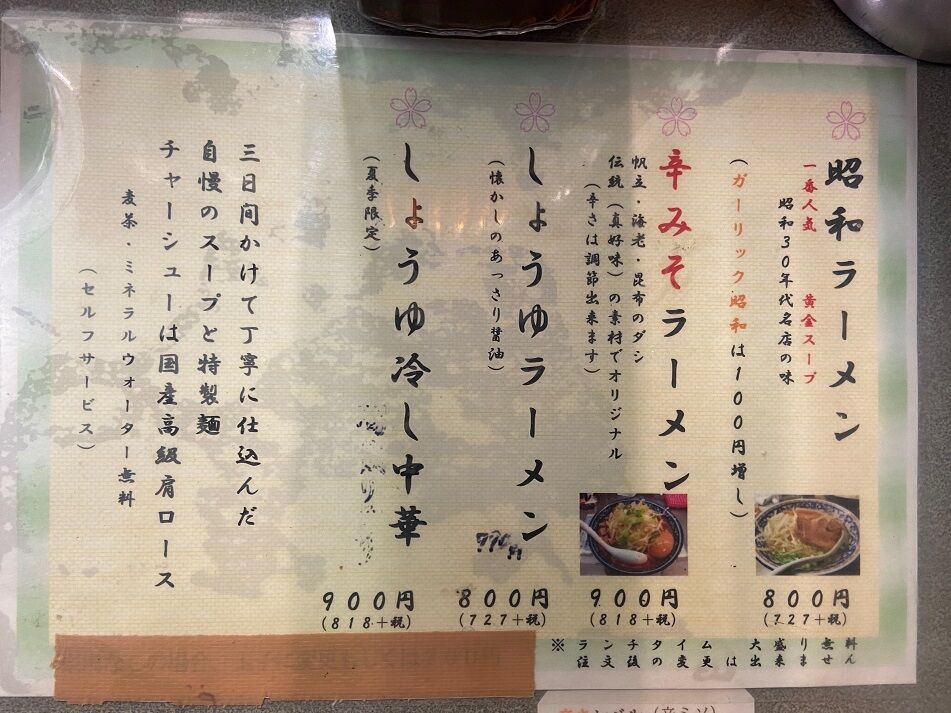 昭和ラーメン
一番人気 黄金スープ
昭和30年代名店の味
(ガーリック昭和は100円増し)
800円
(727+税)
辛みそラーメン
帆立・海老・昆布のダシ
伝統(真好味)の素材でオリジナル
(辛さは調節出来ます)
900円
(818+税)
しょうゆラーメン
(懐かしのあっさり醤油)
800円
(727+税)
しょうゆ冷し中華
(夏季限定)
900円
(818+税)
三日間かけて丁寧に仕込んだ
自慢のスープと特製麺
チャーシューは国産高級肩ロース
麦茶・ミネラルウォーター無料
(セルフサービス)
※ランチタイム 大盛り無料
注文後の変更は出来ません